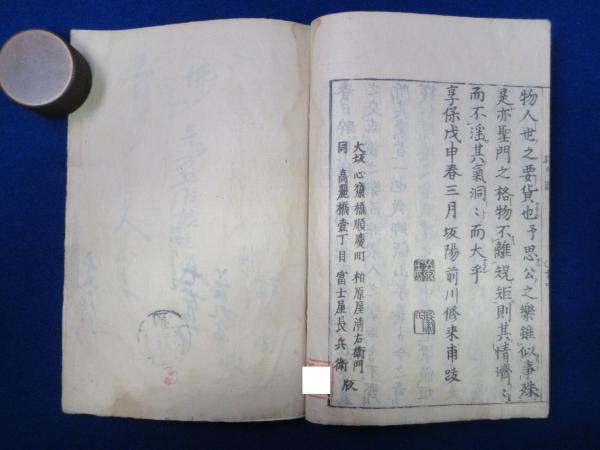 物人世之要貨也予思公之樂雖似事殊
是亦聖門之格物不離規矩則其情濟〻
而不滛其氣洞〻而大乎
享保戊申春三月坂陽前川修来甫跋
大坂心齋橋順慶町 柏原屋清右衛門
同高麗橋壹丁目 富士屋長兵衛 版